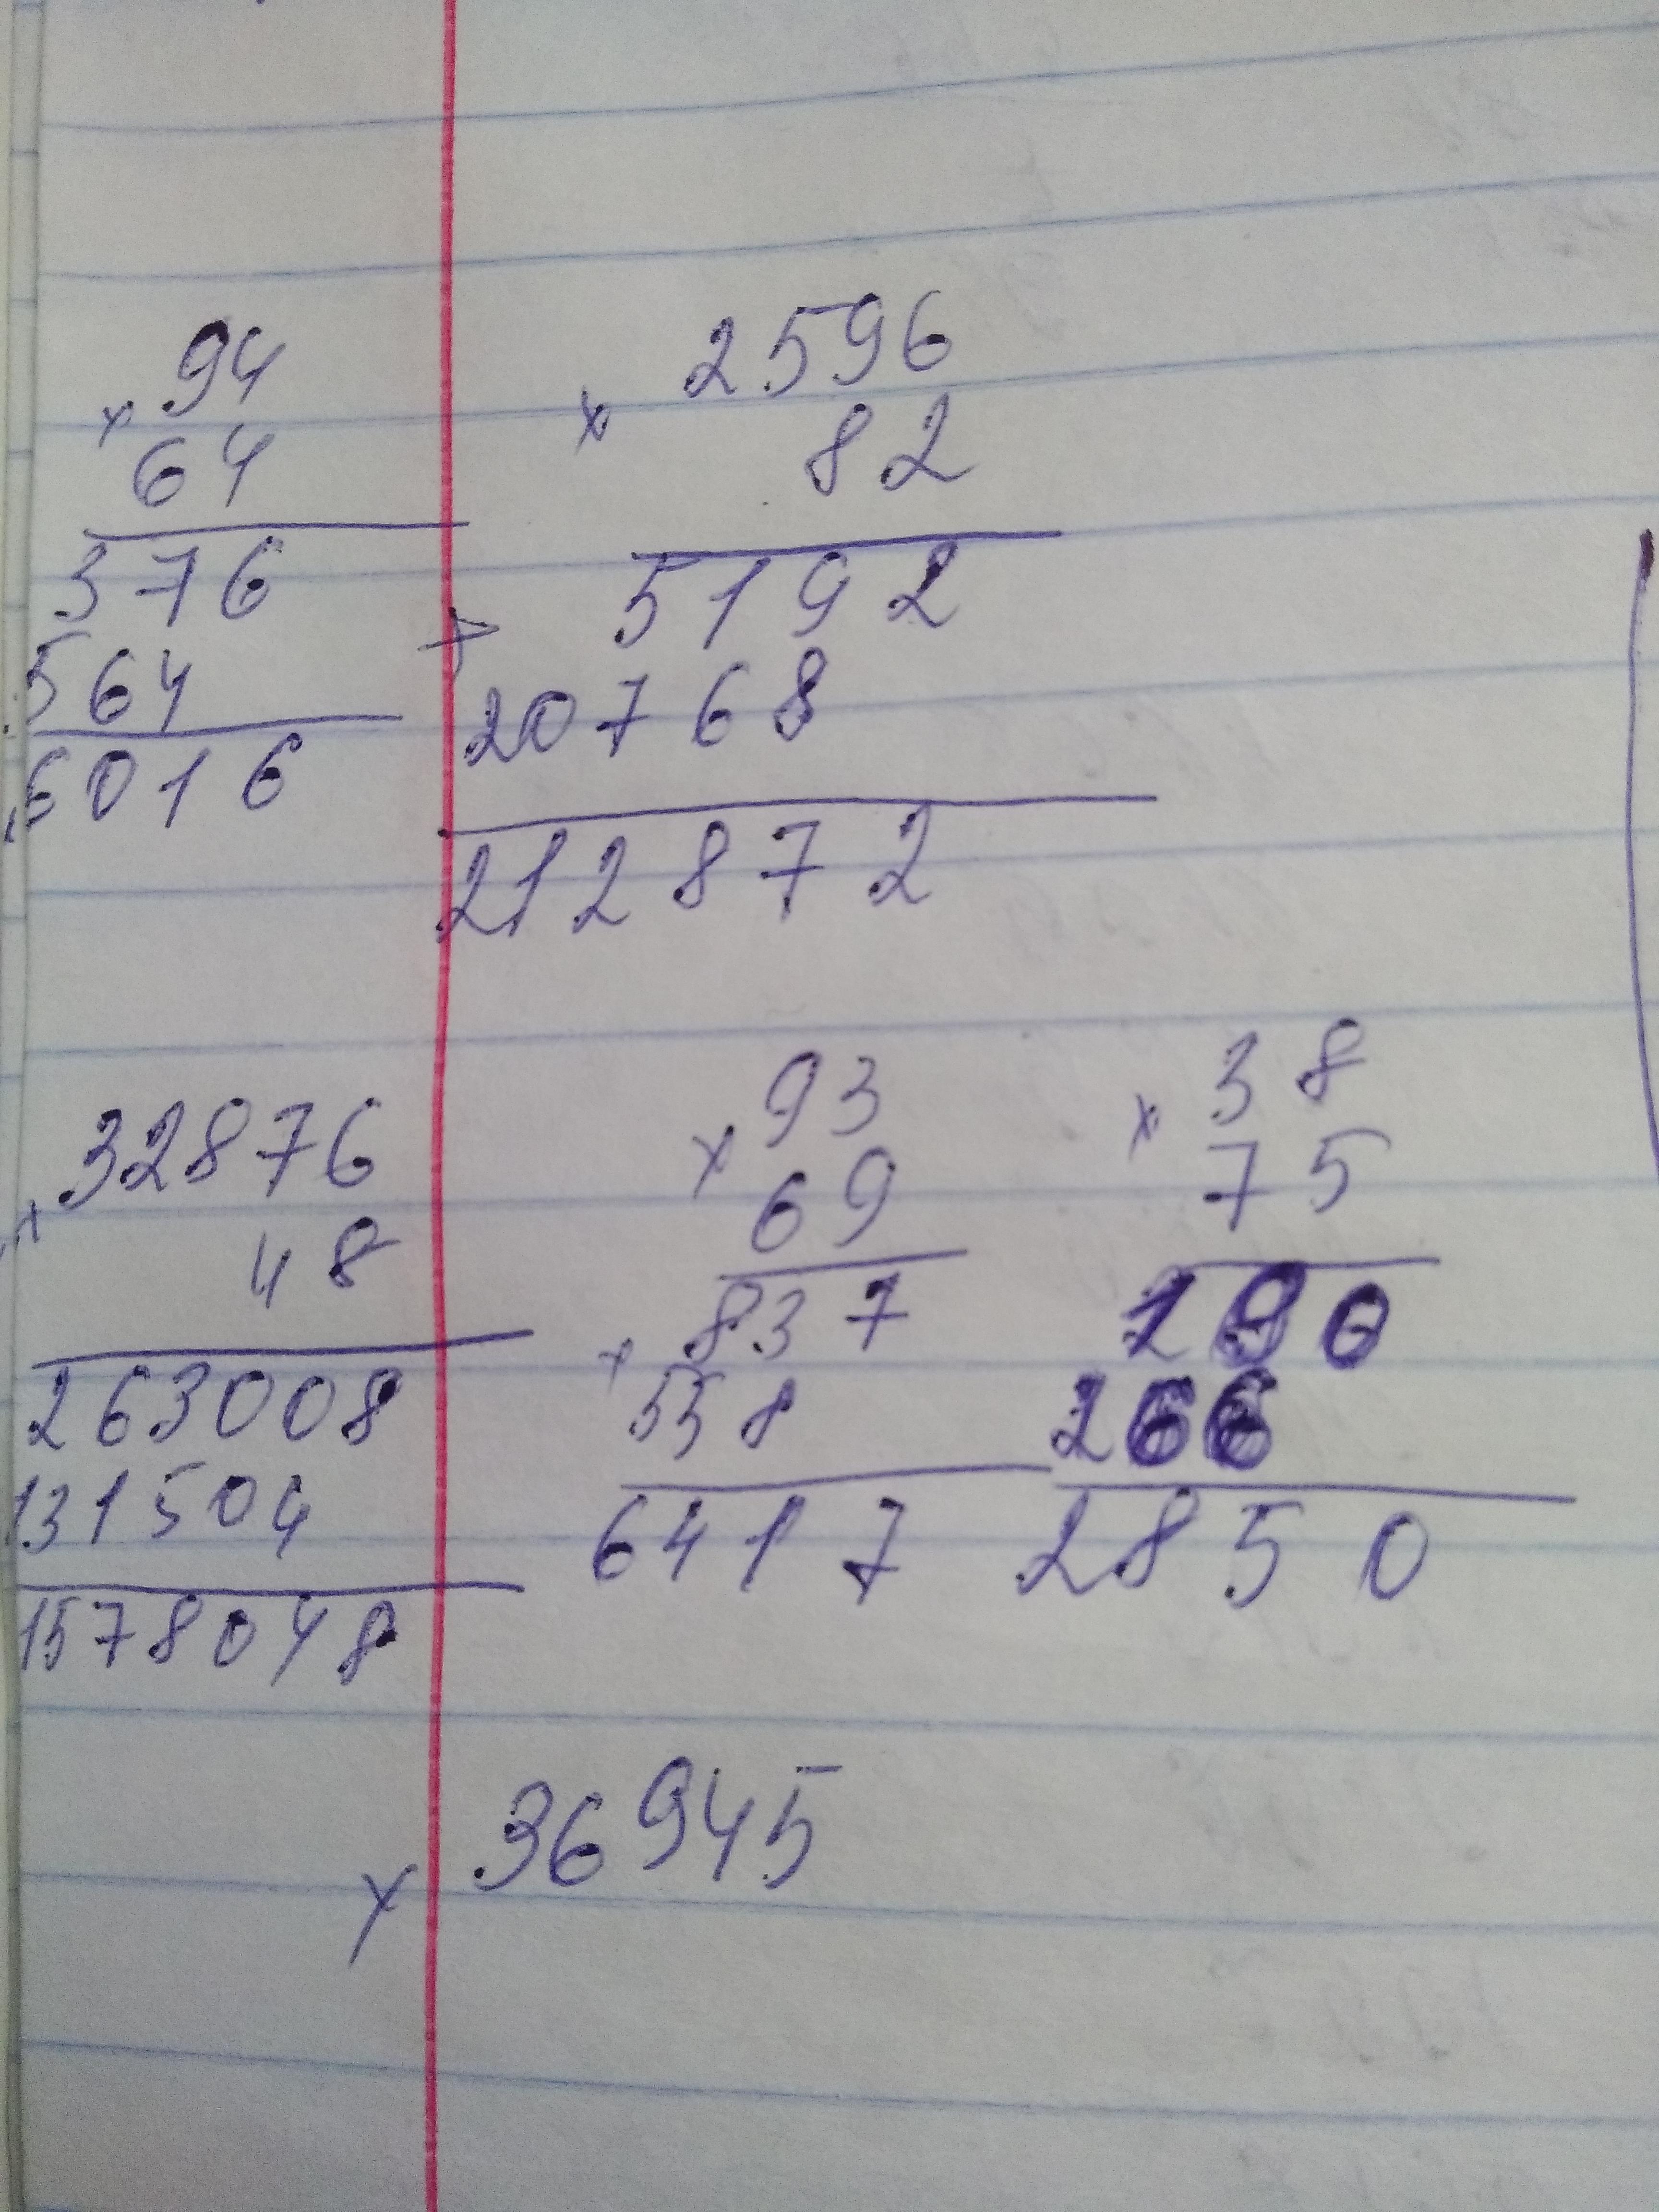 94
× 64
376
564
6016
2596
× 82
+ 5192
20768
212872
32876
× 48
263008
131504
1578048
93
× 69
837
+ 558
6417
38
× 75
190
266
2850
× 36945